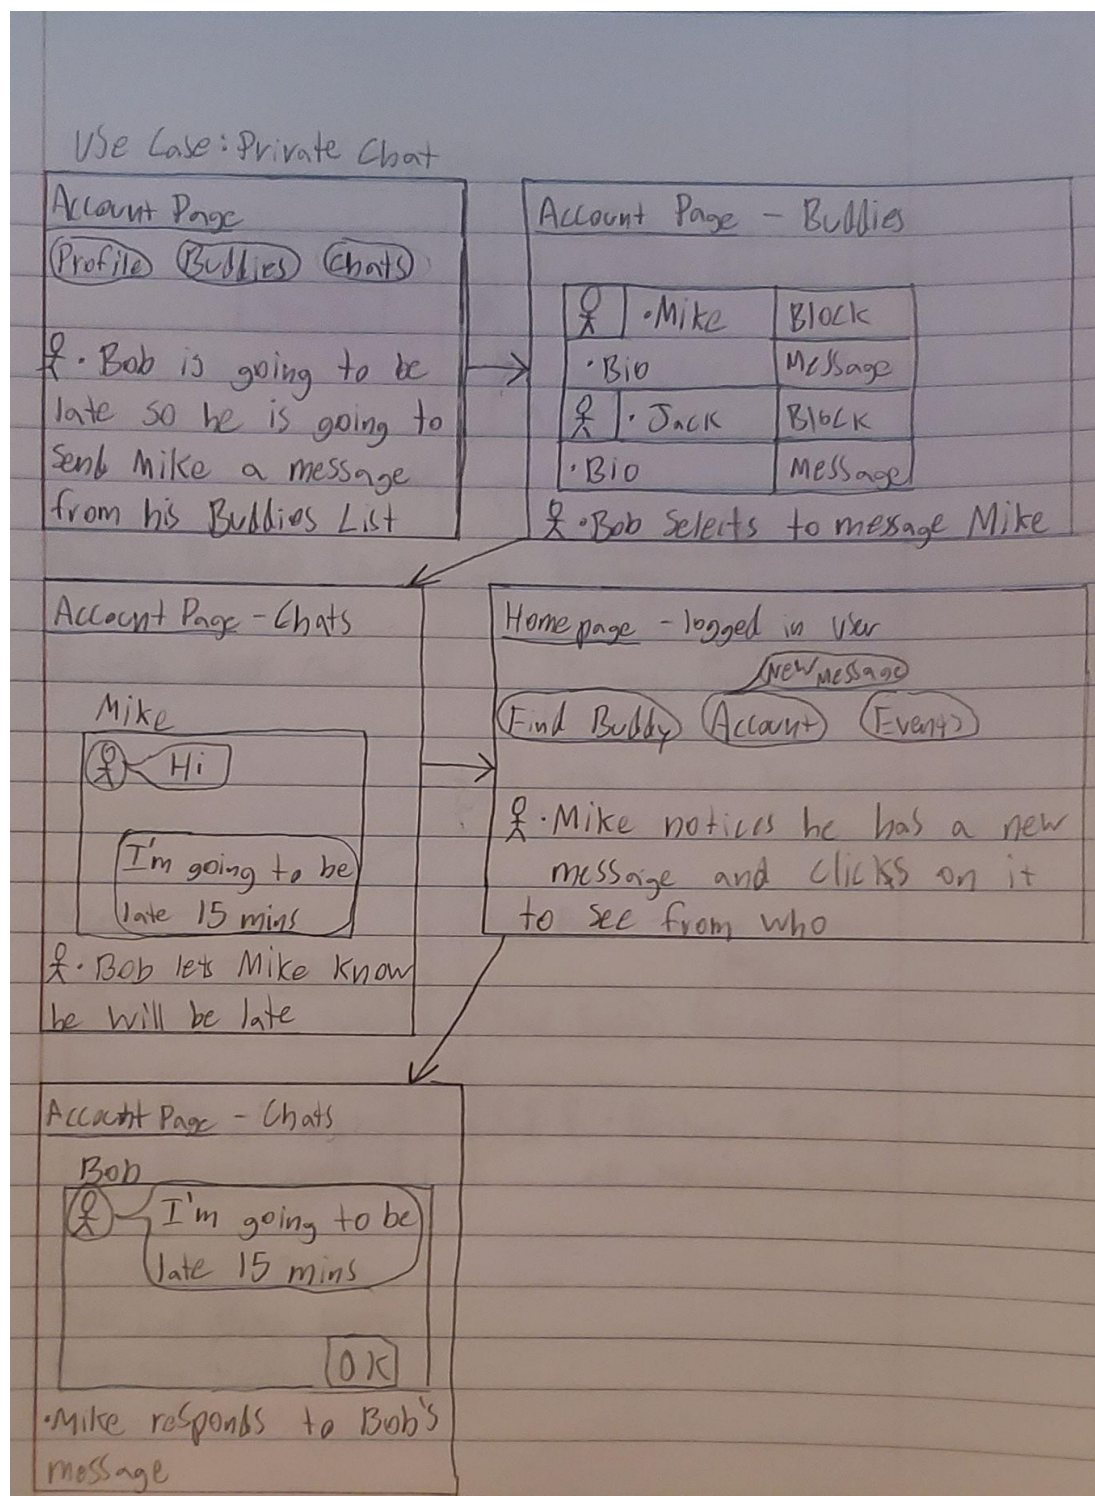 Use Case: Private Chat
Account Page
Profile Buddies Chats
• Bob is going to be
late so he is going to
send Mike a message
from his Buddies List
Account Page - Buddies
• Mike Block
• Bio Message
• Jack Block
• Bio Message
• Bob Selects to message Mike
Account Page - Chats
Mike
Hi
I'm going to be
late 15 mins
• Bob lets Mike know
he will be late
Homepage - logged in user
New Message
Find Buddy Account Events
• Mike notices he has a new
message and clicks on it
to see from who
Account Page - Chats
Bob
I'm going to be
late 15 mins
OK
• Mike responds to Bob's
message